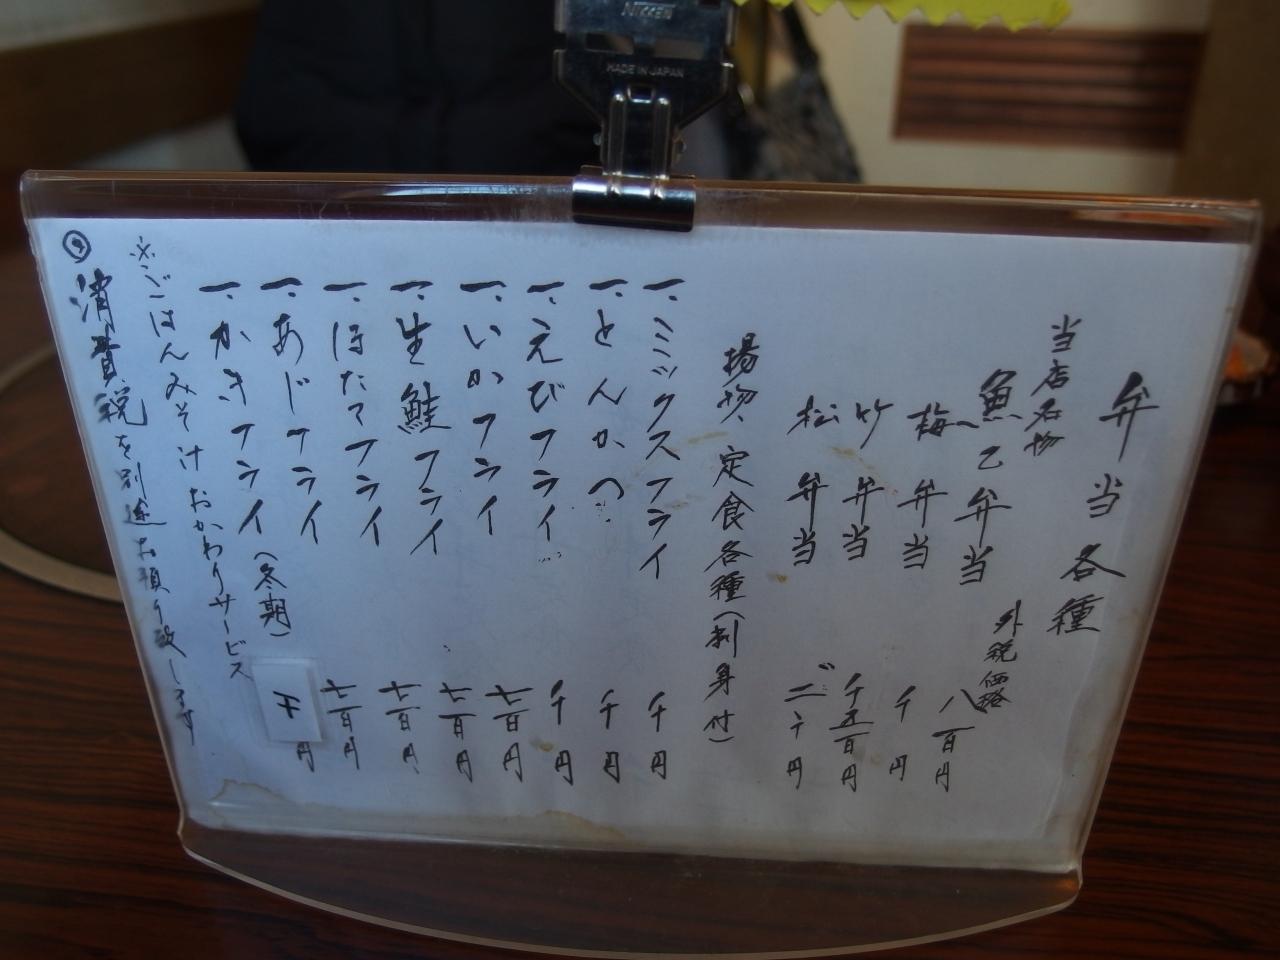 NIKKEN
MADE IN JAPAN
弁当各種
当店名物
魚乙弁当 八百円
外税価格
梅弁当 千円
竹弁当 千五百円
松弁当 二千円
揚物、定食各種(刺身付)
一、ミックスフライ 千円
一、とんかつ 千円
一、えびフライ 千円
一、いかフライ 七百円
一、生鮭フライ 七百円
一、ほたてフライ 七百円
一、あじフライ 七百円
一、かきフライ(冬期) 千円
※ごはんみそ汁おかわりサービス
◎消費税を別途お預り致します